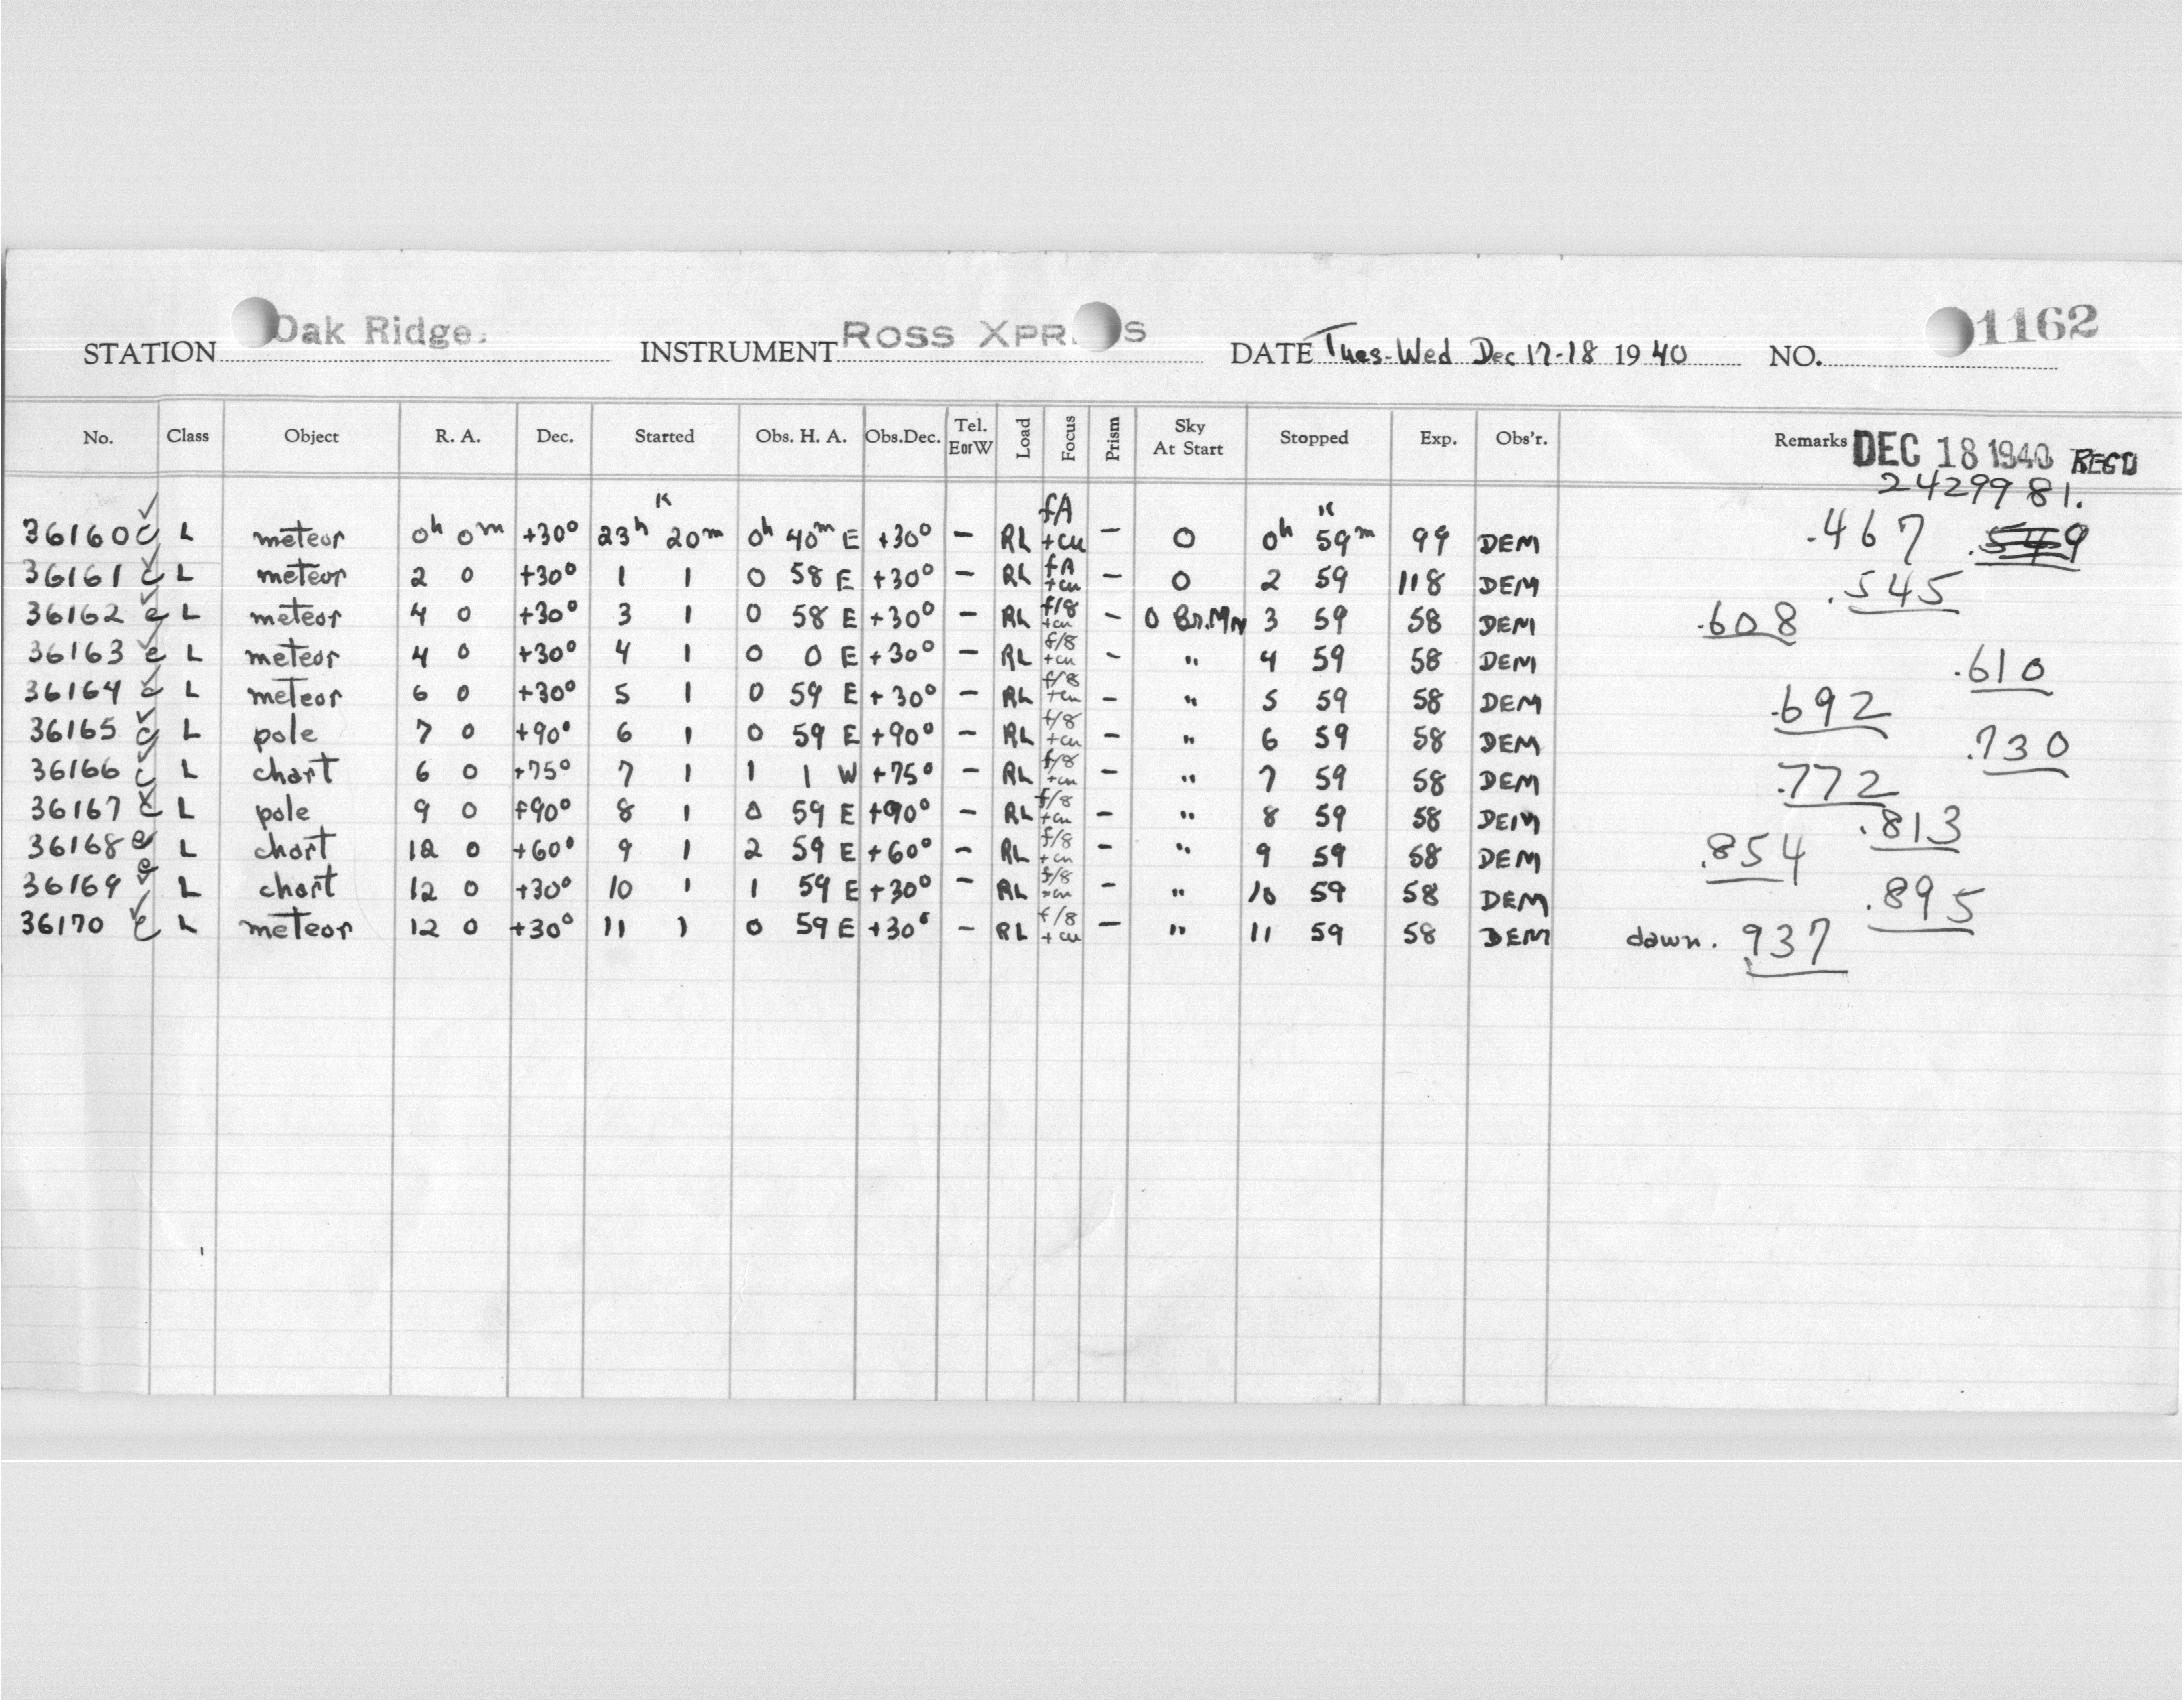 STATION Oak Ridge. INSTRUMENT ROSS XPR S DATE Tues-Wed Dec 17-18 1940 NO. 1162
No. Class Object R. A. Dec. Started Obs. H. A. Obs.Dec. Tel. E or W Load Focus Prism Sky At Start Stopped Exp. Obs'r. Remarks DEC 18 1940 REC'D
2429981.
36160 c L meteor 0h 0m +30° 23h 20m 0h 40m E +30° – RL fA +cu – 0 0h 59m 99 DEM .467
36161 c L meteor 2 0 +30° 1 1 0 58 E +30° – RL fA +cu – 0 2 59 118 DEM .545
36162 e L meteor 4 0 +30° 3 1 0 58 E +30° – RL f/8 +cu – 0 Br.Mn 3 59 58 DEM .608
36163 e L meteor 4 0 +30° 4 1 0 0 E +30° – RL f/8 +cu – " 4 59 58 DEM .610
36164 c L meteor 6 0 +30° 5 1 0 59 E +30° – RL f/8 +cu – " 5 59 58 DEM .692
36165 c L pole 7 0 +90° 6 1 0 59 E +90° – RL f/8 +cu – " 6 59 58 DEM .730
36166 c L chart 6 0 +75° 7 1 1 1 W +75° – RL f/8 +cu – " 7 59 58 DEM .772
36167 c L pole 9 0 +90° 8 1 0 59 E +90° – RL f/8 +cu – " 8 59 58 DEM .813
36168 e L chart 12 0 +60° 9 1 2 59 E +60° – RL f/8 +cu – " 9 59 58 DEM .854
36169 e L chart 12 0 +30° 10 1 1 59 E +30° – RL f/8 +cu – " 10 59 58 DEM .895
36170 c L meteor 12 0 +30° 11 1 0 59 E +30° – RL f/8 +cu – " 11 59 58 DEM dawn. .937